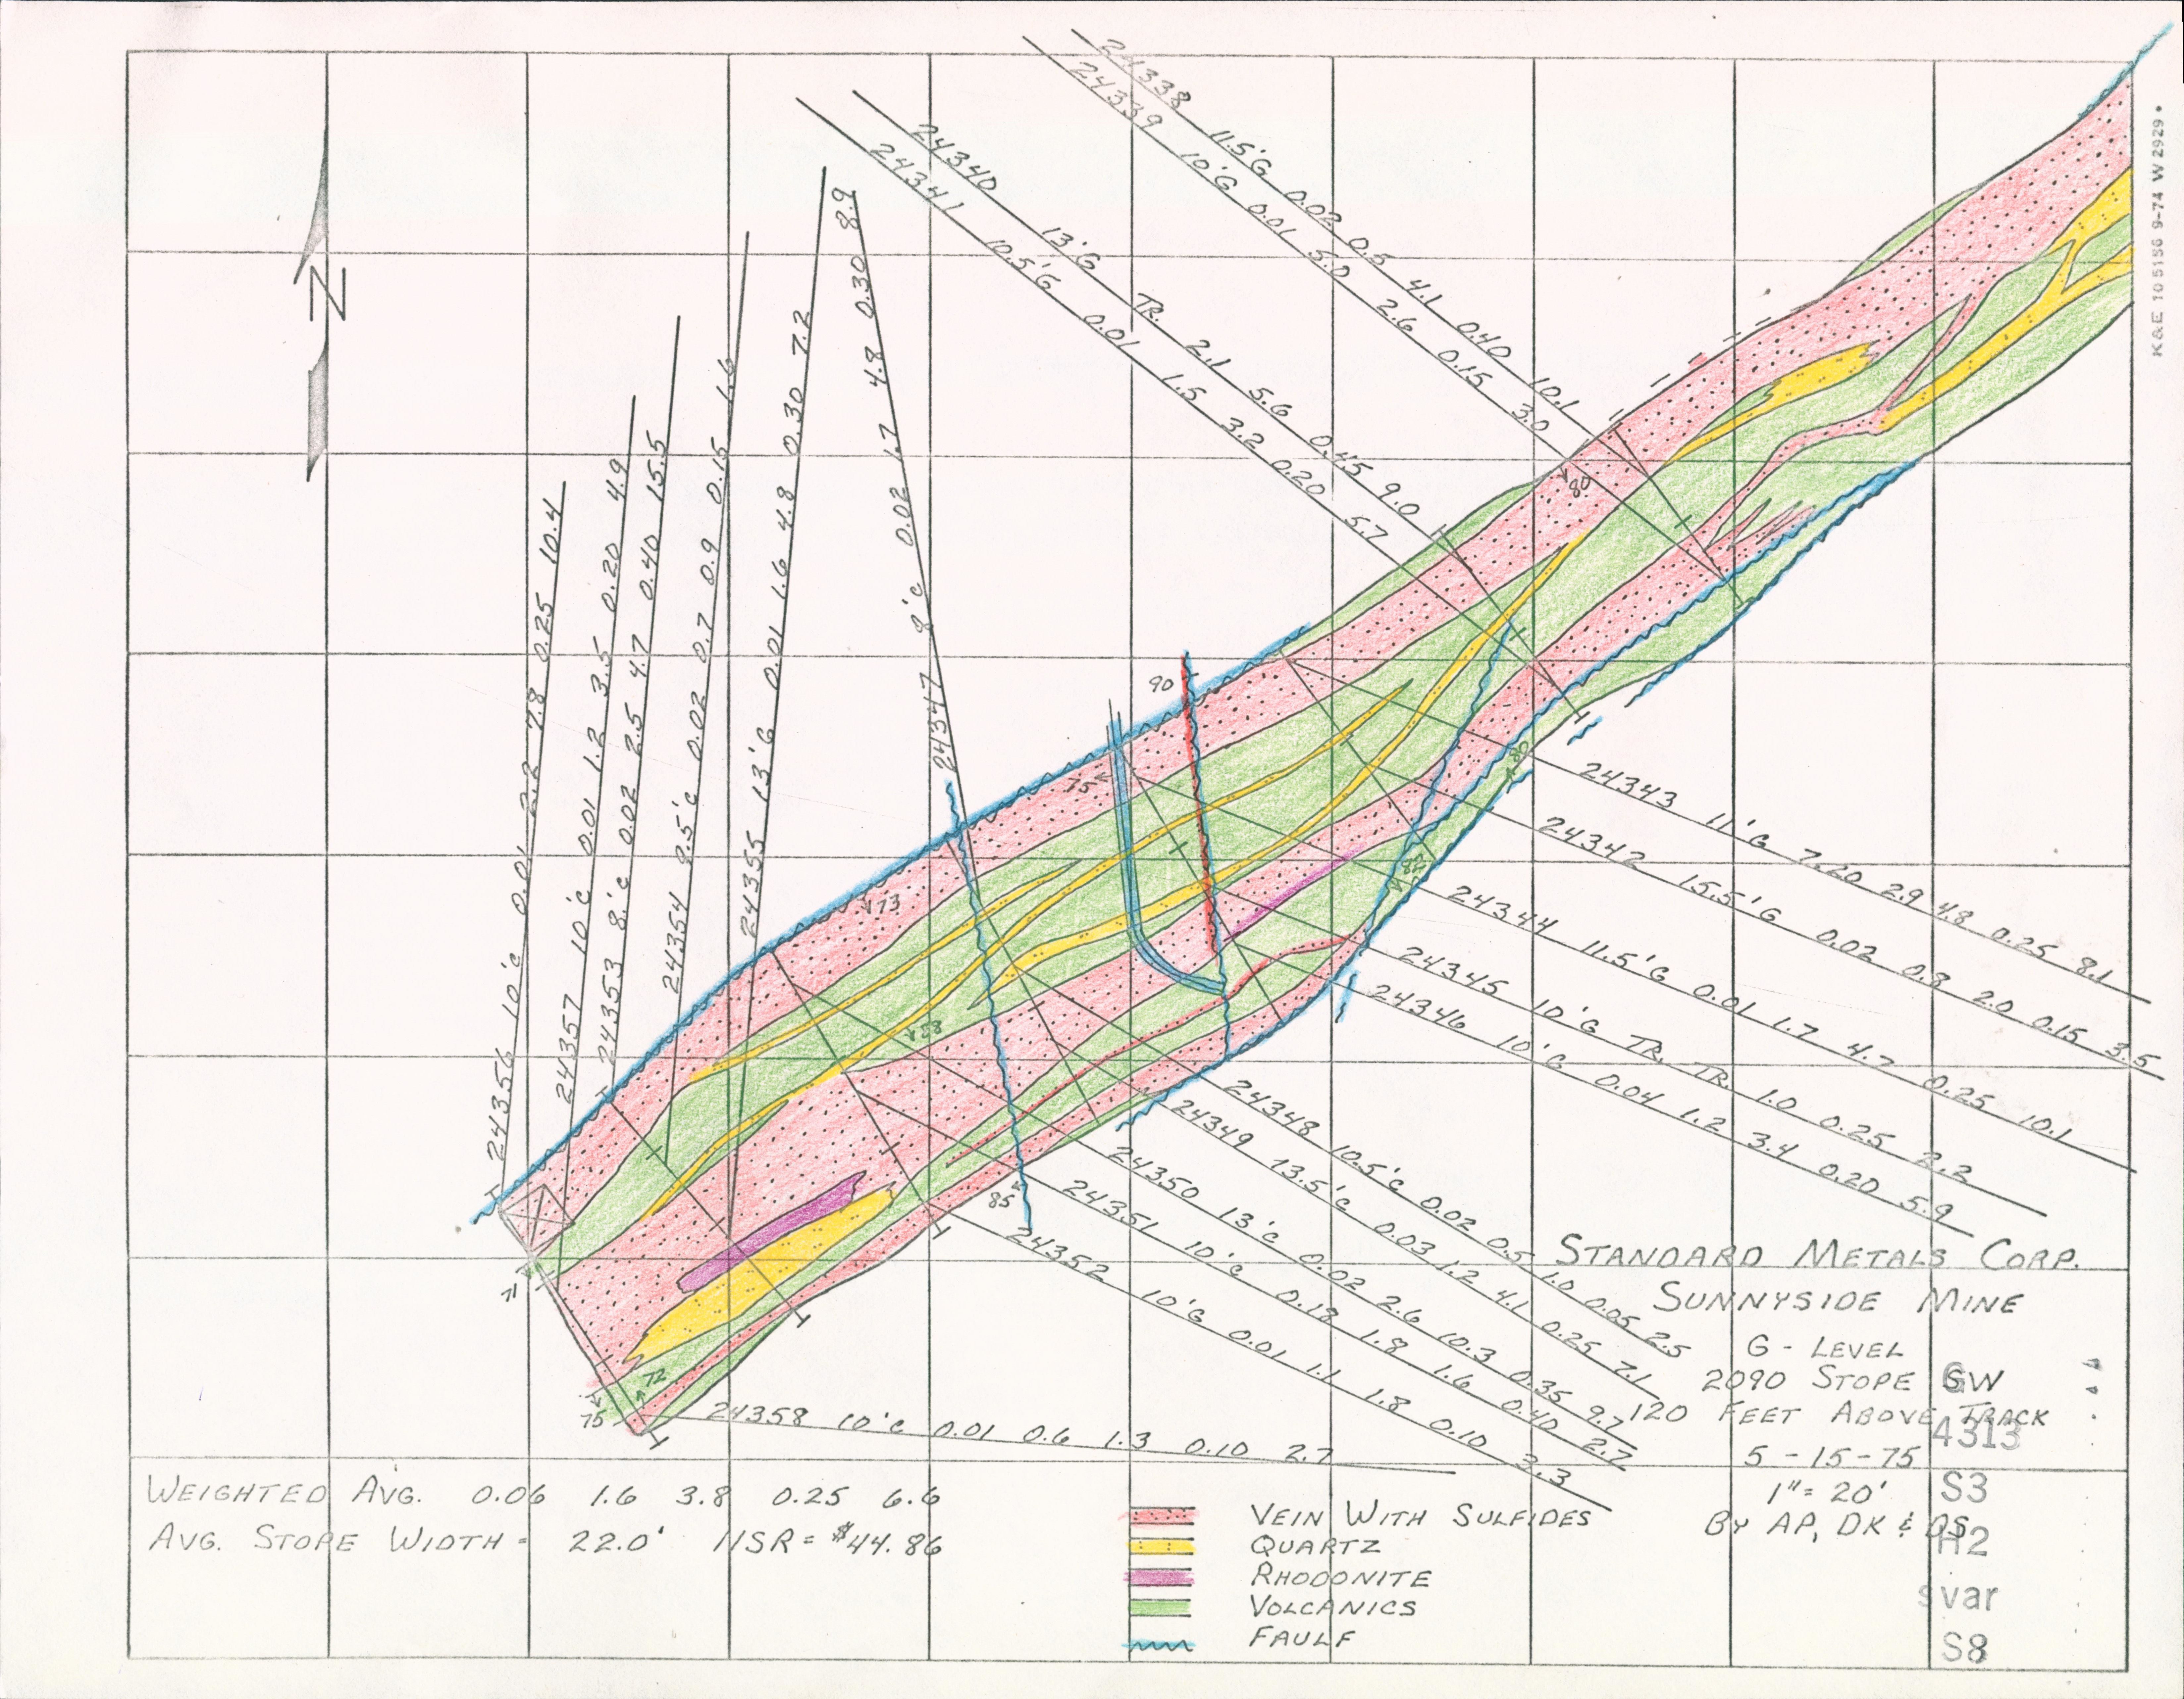 24338 11.5'G 0.02 0.5 4.1 0.40 10.1
24339 10'G 0.01 5.0 2.6 0.15 3.0
24340 13'G TR. 2.1 5.6 0.45 9.0
24341 10.5'G 0.01 1.5 3.2 0.20 5.7
24347 8'C 0.02 1.7 4.8 0.30 8.9
24355 13'G 0.01 1.6 4.8 0.30 7.2
24354 9.5'C 0.02 0.7 0.9 0.15 1.6
24353 8'C 0.02 2.5 4.7 0.40 15.5
24357 10'C 0.01 1.2 3.5 0.20 4.9
24356 10'C 0.01 2.2 7.8 0.25 10.4
N
K&E 10 5156 9-74 W 2929
80
90
75
73
80
82
88
85
71
72
75
24343 11'G 7.20 2.9 4.8 0.25 8.1
24342 15.5'G 0.02 0.8 2.0 0.15 3.5
24344 11.5'G 0.01 1.7 4.7 0.25 10.1
24345 10'G TR. TR. 1.0 0.25 2.2
24346 10'G 0.04 1.2 3.4 0.20 5.9
24348 10.5'C 0.02 0.5 1.0 0.05 2.5
24349 13.5'C 0.03 1.2 4.1 0.25 7.1
24350 13'C 0.02 2.6 10.3 0.35 9.7
24351 10'C 0.18 1.8 1.6 0.40 2.7
24352 10'G 0.01 1.1 1.8 0.10 3.3
24358 10'C 0.01 0.6 1.3 0.10 2.7
STANDARD METALS CORP.
SUNNYSIDE MINE
G - LEVEL
2090 STOPE SW
120 FEET ABOVE TRACK
5 - 15 - 75
1" = 20'
BY AP, DK & DS
G
4313
S3
A2
svar
S8
WEIGHTED AVG. 0.06 1.6 3.8 0.25 6.6
AVG. STOPE WIDTH = 22.0' NSR = $44.86
VEIN WITH SULFIDES
QUARTZ
RHODONITE
VOLCANICS
FAULT